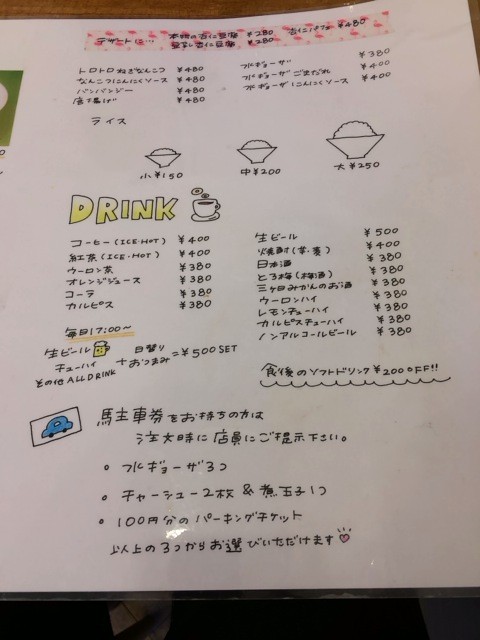 デザートに… 本明の杏仁豆腐 ¥280 杏仁パフェ ¥480
豆乳杏仁豆腐 ¥280
トロトロねぎなんこつ ¥480
なんこつにんにくソース ¥480
バンバンジー ¥480
唐揚げ ¥480
水ギョーザ ¥380
水ギョーザごまだれ ¥400
水ギョーザにんにくソース ¥400
ライス
小¥150 中¥200 大¥250
DRINK
コーヒー(ICE・HOT) ¥400
紅茶(ICE・HOT) ¥400
ウーロン茶 ¥380
オレンジジュース ¥380
コーラ ¥380
カルピス ¥380
生ビール ¥500
焼酎(芋・麦) ¥400
日本酒 ¥380
とろ梅(梅酒) ¥380
三ヶ日みかんのお酒 ¥380
ウーロンハイ ¥380
レモンチューハイ ¥380
カルピスチューハイ ¥380
ノンアルコールビール ¥380
毎日17:00~
生ビール
チューハイ
その他ALL DRINK
+ 日替り おつまみ =¥500 SET
食後のソフトドリンク¥200OFF!!
馬主車券をお持ちの方は
注文時に店員にご提示下さい。
○ 水ギョーザ3つ
○ チャーシュー2枚&煮玉子1つ
○ 100円分のパーキングチケット
以上の3つからお選びいただけます♡